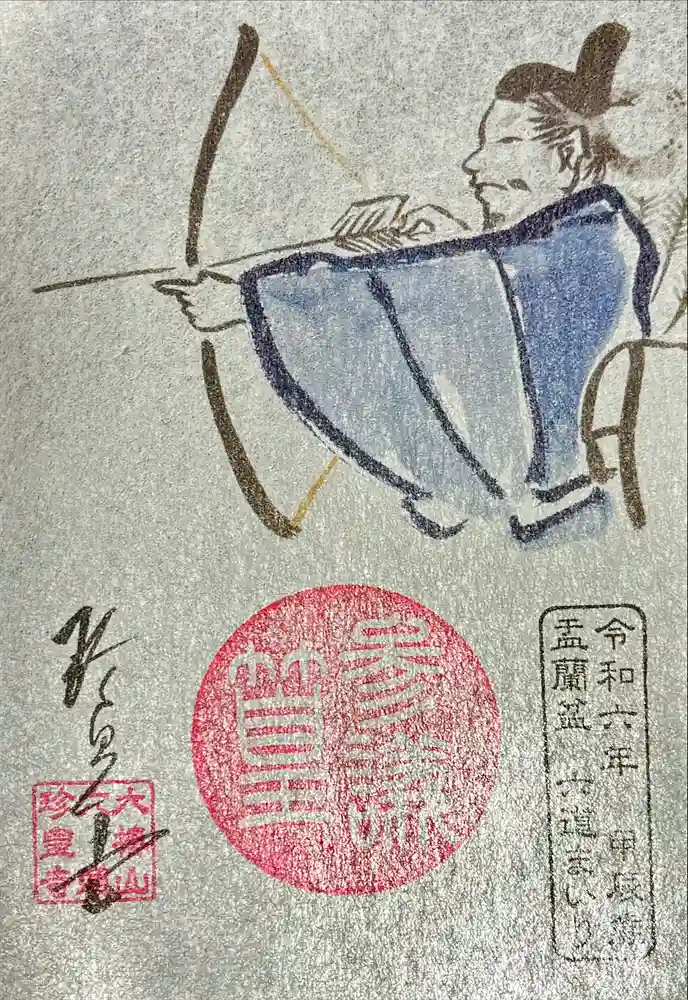 令和六年 甲辰歳
盂蘭盆 六道まいり
參議
篁
大椿山
六道
珍皇寺